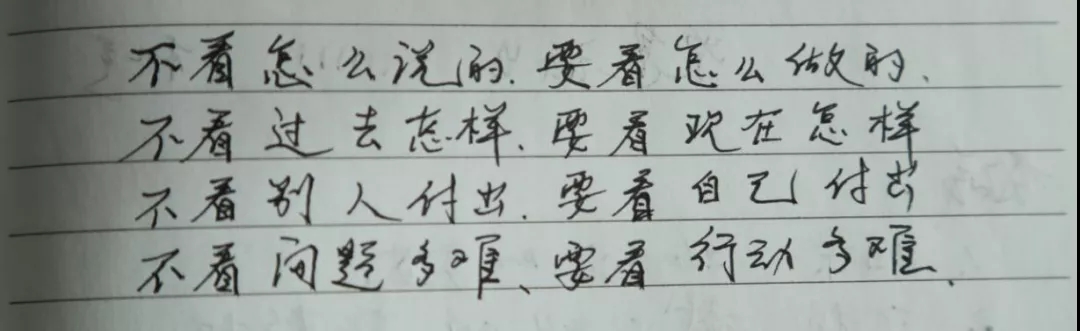 不看怎么说的.要看怎么做的.
不看过去怎样.要看现在怎样
不看别人付出.要看自己付出
不看问题多难、要看行动多难.